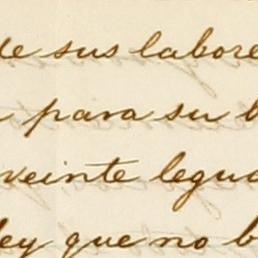 de sus labore
para su b
veinte legua
ley que no b